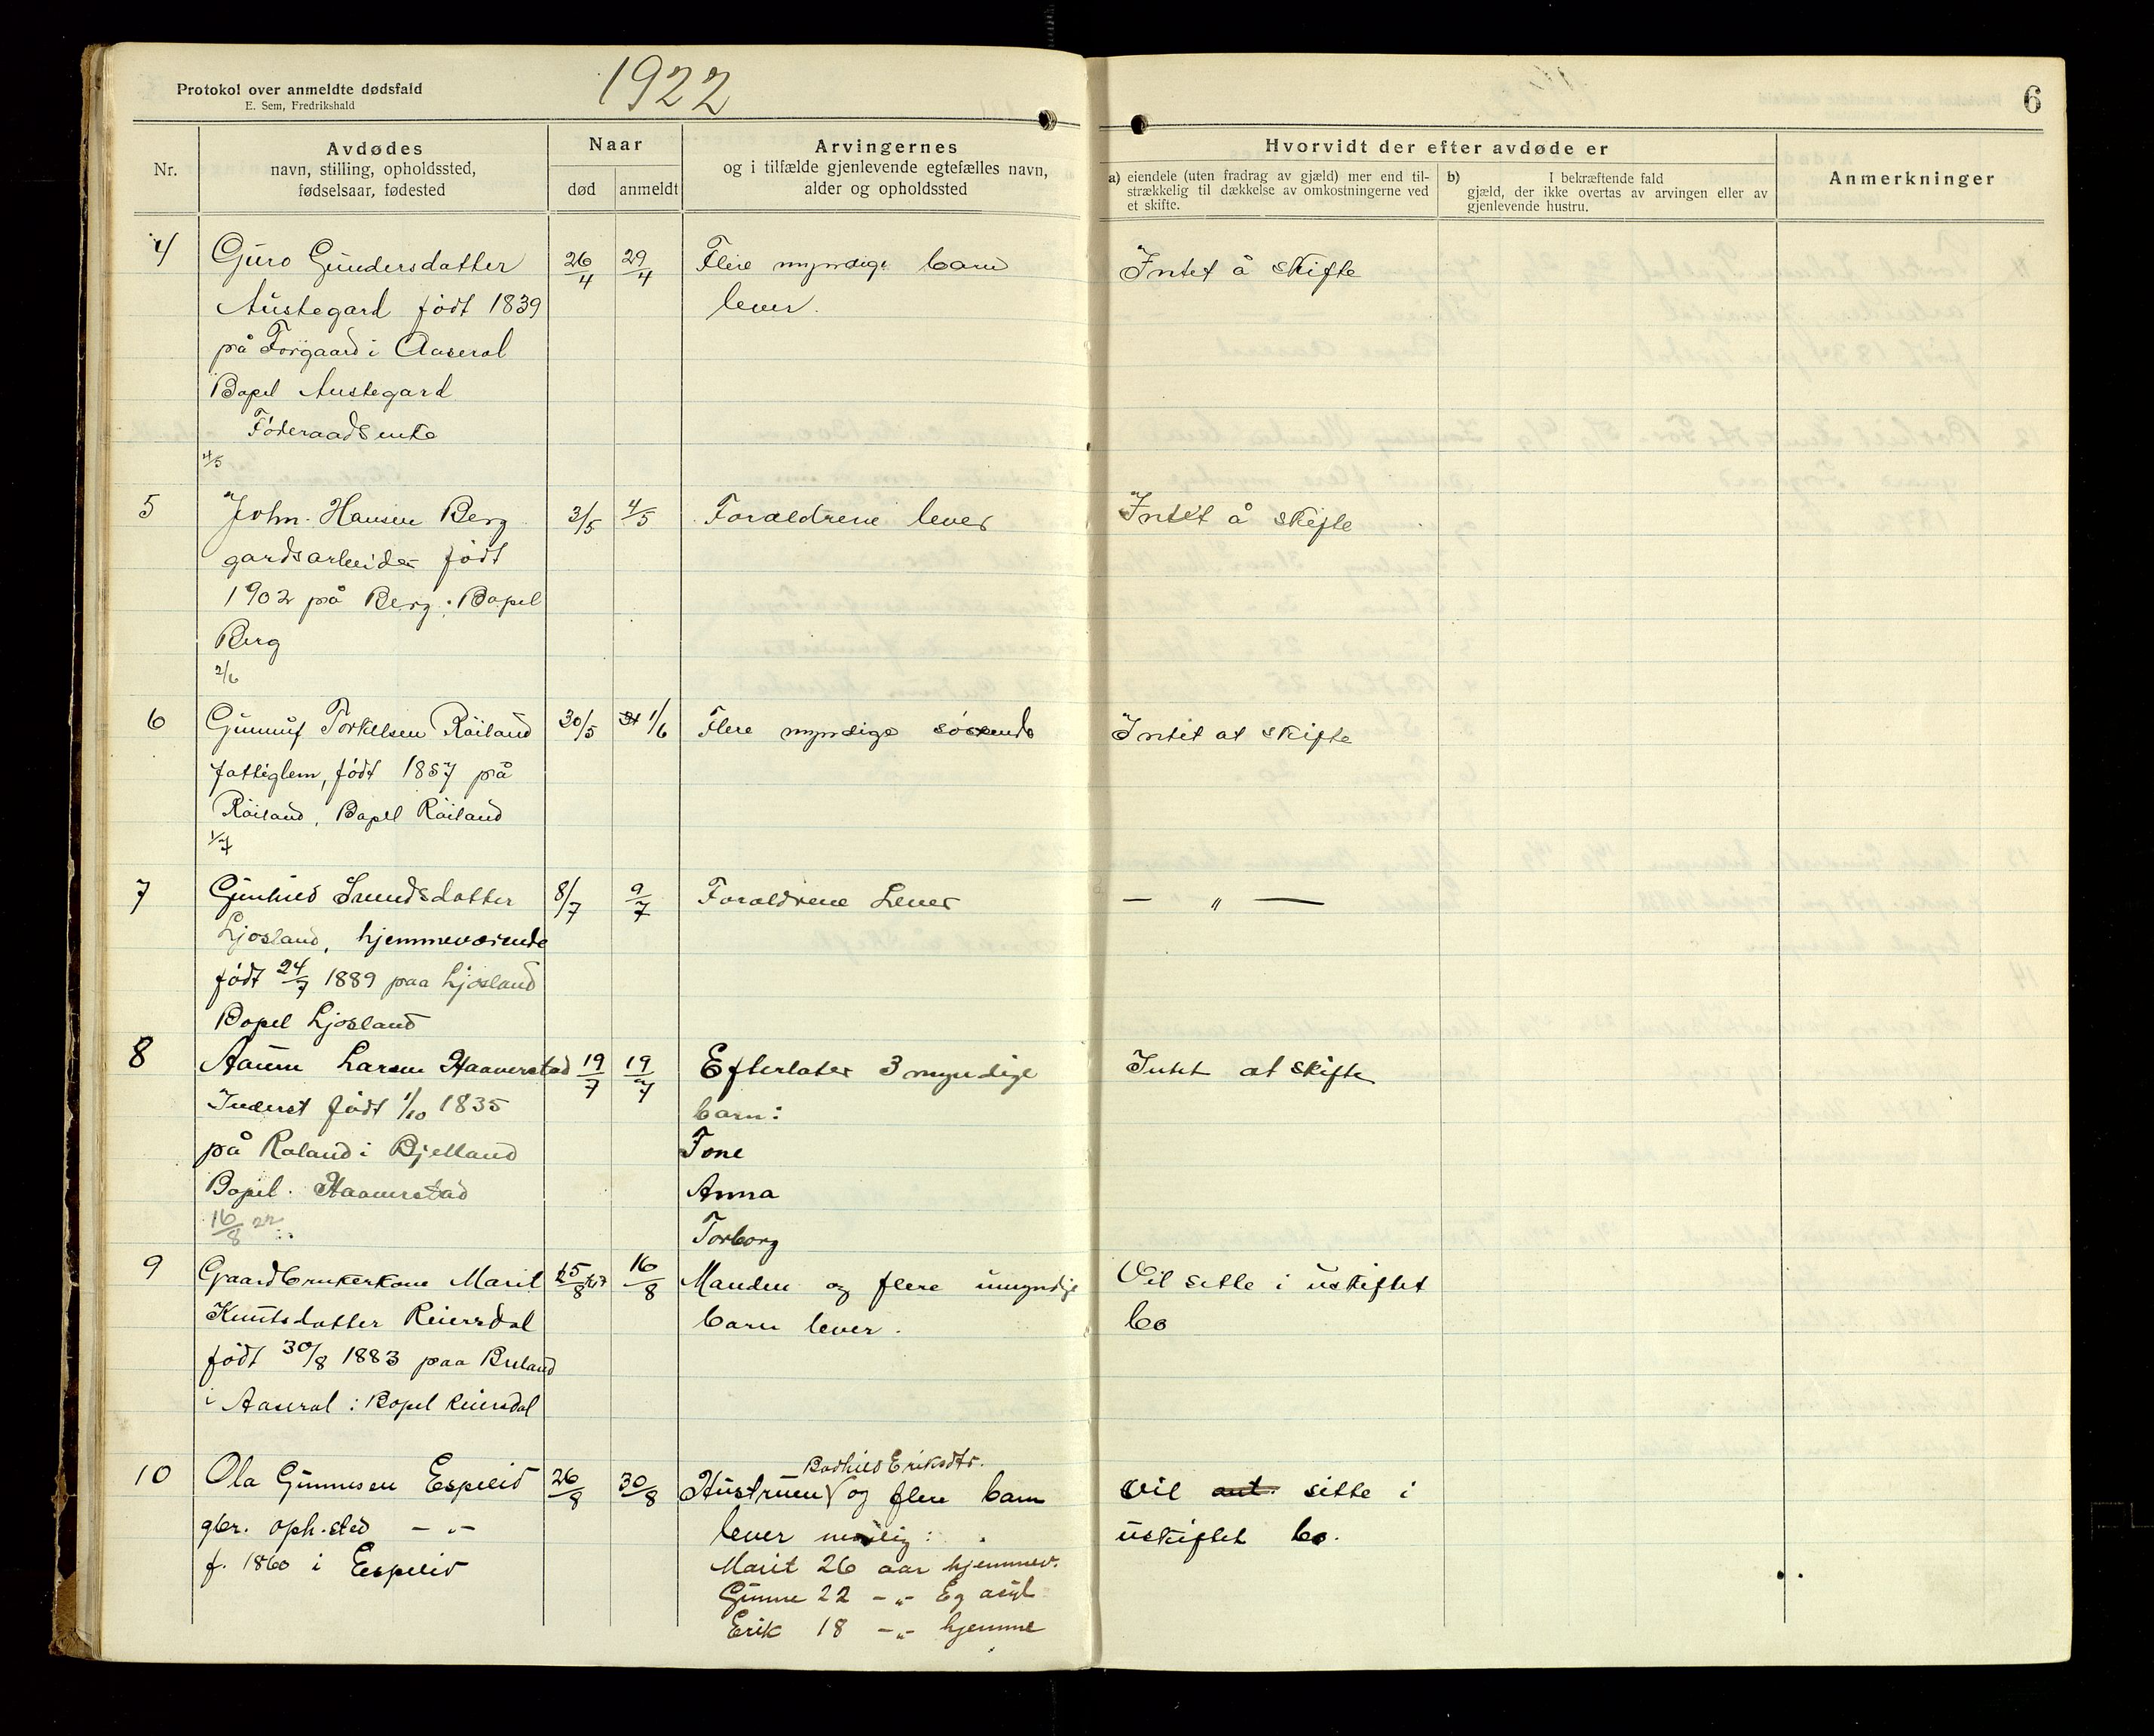 Protokol over anmeldte dødsfald
E. Sem, Fredrikshald
1922
6
Nr.
Avdødes
navn, stilling, opholdssted,
fødselsaar, fødested
Naar
død
anmeldt
Arvingernes
og i tilfælde gjenlevende egtefælles navn,
alder og opholdssted
Hvorvidt der efter avdøde er
a) eiendele (uten fradrag av gjæld) mer end til-
strækkelig til dækkelse av omkostningerne ved
et skifte.
b) I bekræftende fald
gjæld, der ikke overtas av arvingen eller av
gjenlevende hustru.
Anmerkninger
4 Guro Gundersdatter 26/4 29/4 Flere myndige barn Intet å skifte
Austegard født 1839 lever.
på Forgaard i Aaseral
Bopel Austegard
Føderaadsenke
4/5
5 John Hansen Berg 3/5 4/5 Foraldrene lever Intet å skifte
gardsarbeider født
1902 på Berg: Bopel
Berg
2/6
6 Gunnuf Torkelsen Røiland 30/5 31 1/6 Flere myndige søskende Intet at skifte
fattiglem, født 1857 på
Røiland, Bopel Røiland
1/7
7 Gunhild Svendsdatter 8/7 9/7 Foraldrene Lever — " —
Ljosland, hjemmeværende
født 24/7 1889 paa Ljosland
Bopel Ljosland
8 Aanen Larsen Haaverstad 19/7 19/7 Efterlater 3 myndige Intet at skifte
Inderst født 1/10 1835 barn:
på Røland i Bjelland Tone
Bopel. Haaverstad Anna
16/8 22 Torborg
9 Gaardbrukerkone Marit 15/8 16/8 Manden og flere umyndige Vil sitte i uskiftet
Knutsdatter Reiersdal barn lever. bo
født 30/8 1883 paa Breland
i Aaseral: Bopel Reiersdal
Bodhild Eriksdtr.
10 Ola Gunnesen Espelid 26/8 30/8 Hustruen og flere barn Vil ant. sitte i
gbr. oph.sted — " — lever nemlig: uskiftet bo.
f. 1860 i Espelid Marit 26 aar hjemmev.
Gunne 22 — " — Eg asyl
Erik 18 — " — hjemme